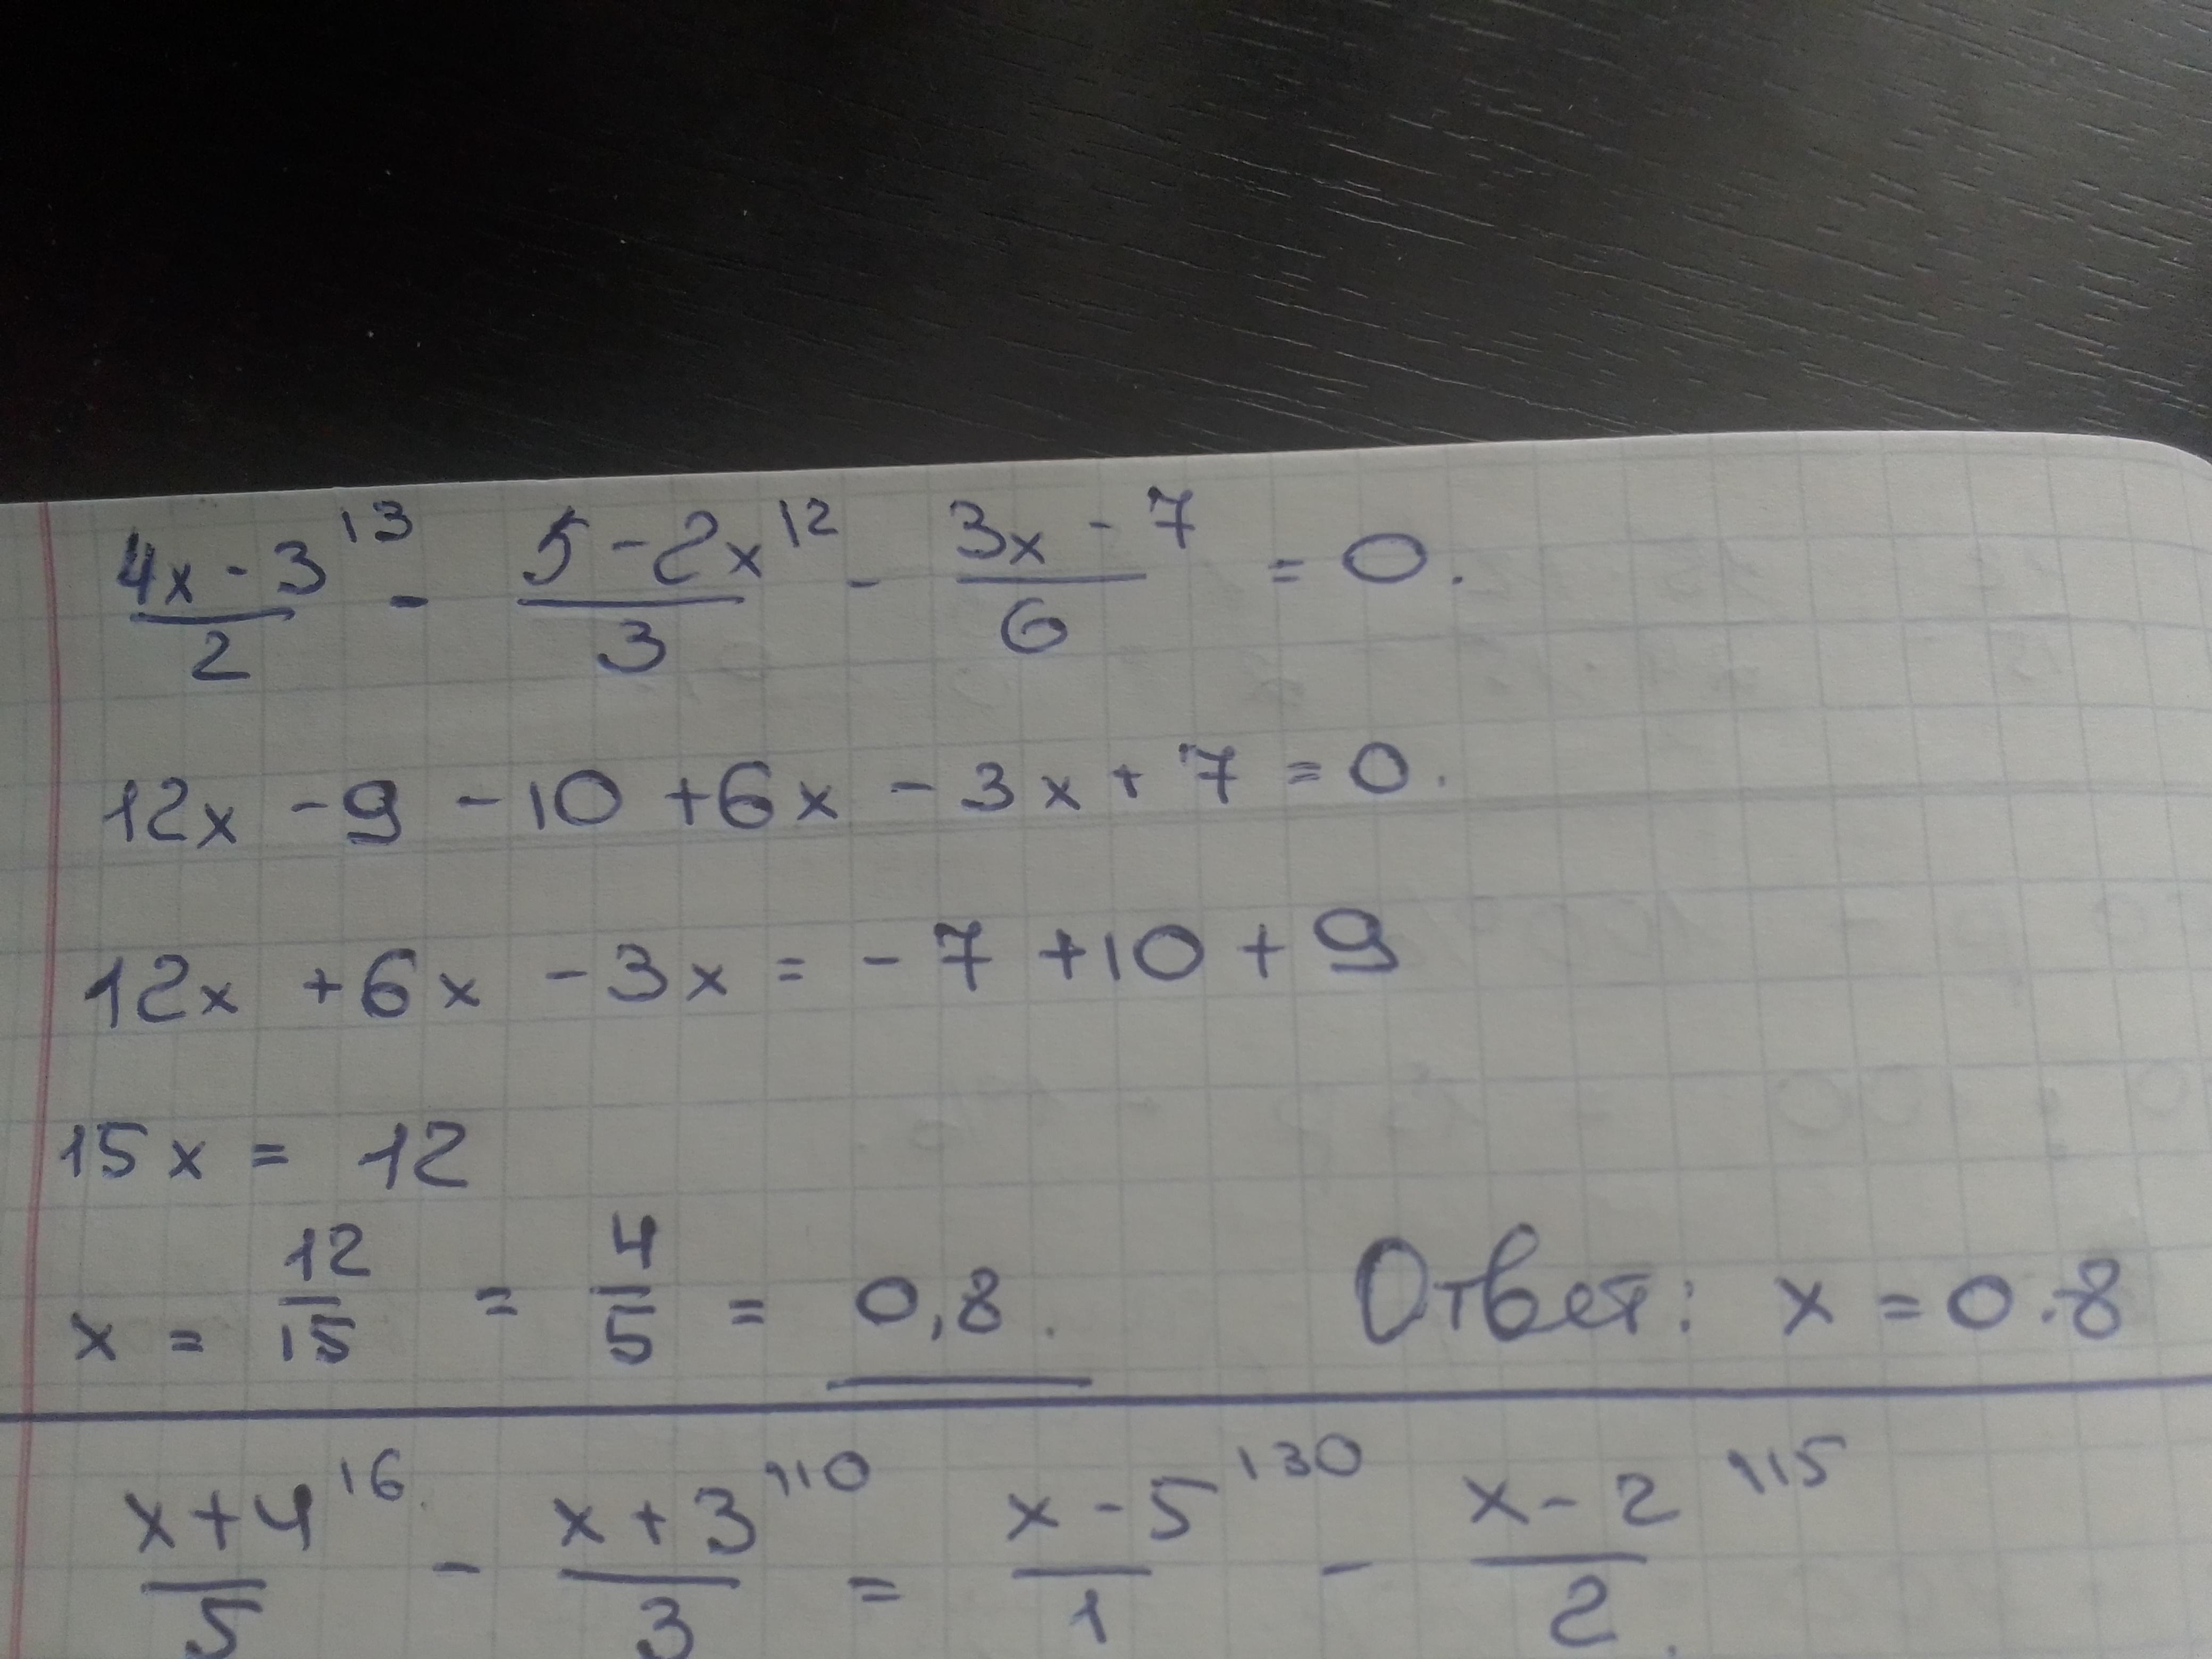 (4x-3)/2 ^13 - (5-2x)/3 ^12 - (3x-7)/6 = 0.
12x - 9 - 10 + 6x - 3x + 7 = 0.
12x + 6x - 3x = - 7 + 10 + 9
15x = 12
x = 12/15 = 4/5 = 0,8. Ответ: x = 0.8
(x+4)/5 ^16. - (x+3)/3 ^110 = (x-5)/1 ^130 - (x-2)/2 ^115.